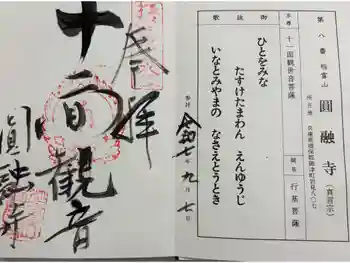 第八番 稲富山 圓融寺 (真言宗)
所在地 兵庫県揖保郡御津町岩見八〇七
本尊 十一面観世音菩薩
開基 行基菩薩
御詠歌
ひとをみな
たすけたまわん えんゆうじ
いなとみやまの なさえとうとき
参拝 令和七年九月七日
奉拝
十一面観音
圓融寺